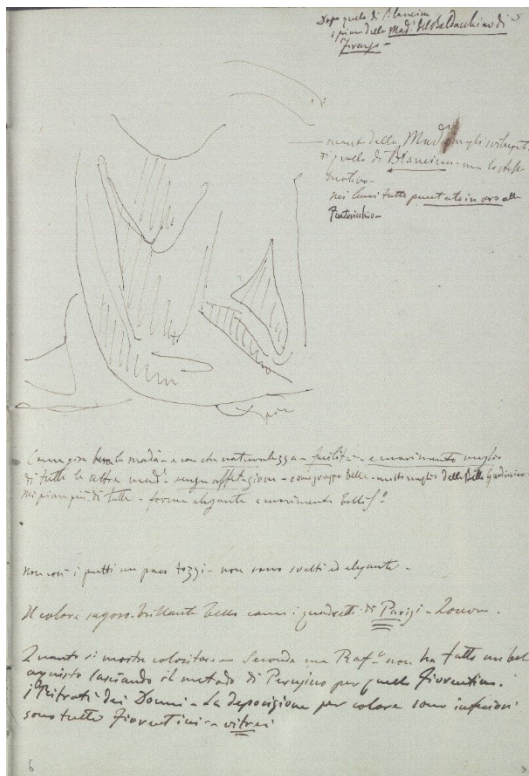 Dopo quello di Blancini
è piano della Mad. del Baldacchino di
Firenze -
manto della Mad. meglio sviluppato
di quello di Blancini - ma lo stesso
motivo -
nei lumi tutto punteato in oro alla
Pintoricchio -
Come posa bene la mad.a - e con che naturalezza - facilità - e movimento meglio
di tutte le altre mad.e affettazione - della molto meglio della Belle Jardinière
mi piace più di tutte - forma elegante e movimento bellis.o
non così i putti un poco tozzi - non sono svelti ed eleganti -
Il colore sugoso brillante bello come i quadretti di Parigi - Louvre.
Quanto si mostra colorista - Secondo me Raf.o non ha fatto un bel
acquisto lasciando il metodo di Perugino per quello Fiorentino.
i Ritratti dei Donni - La deposizione per colore sono inferiori
sono tutte Fiorentini - vitrei
6